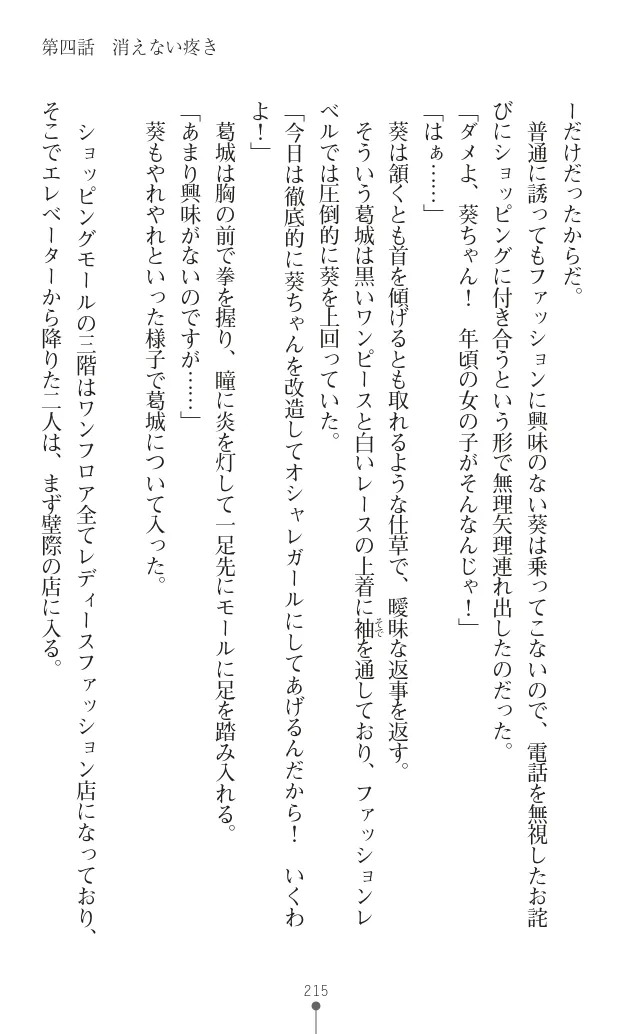 第四話　消えない疼き
ーだけだったからだ。
　普通に誘ってもファッションに興味のない葵は乗ってこないので、電話を無視したお詫
びにショッピングに付き合うという形で無理矢理連れ出したのだった。
「ダメよ、葵ちゃん！　年頃の女の子がそんなんじゃ！」
「はぁ……」
　葵は頷くとも首を傾げるとも取れるような仕草で、曖昧な返事を返す。
　そういう葛城は黒いワンピースと白いレースの上着に袖を通しており、ファッションレ
そで
ベルでは圧倒的に葵を上回っていた。
「今日は徹底的に葵ちゃんを改造してオシャレガールにしてあげるんだから！　いくわ
よ！」
　葛城は胸の前で拳を握り、瞳に炎を灯して一足先にモールに足を踏み入れる。
「あまり興味がないのですが……」
　葵もやれやれといった様子で葛城について入った。
　ショッピングモールの三階はワンフロア全てレディースファッション店になっており、
そこでエレベーターから降りた二人は、まず壁際の店に入る。
215